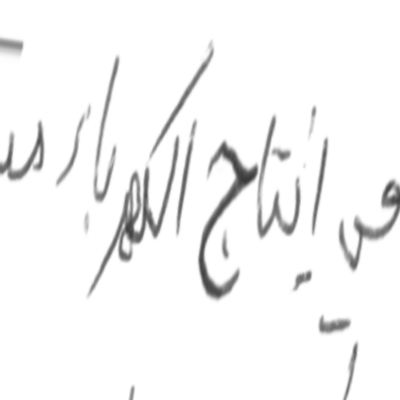 في إنتاج الكهرباء